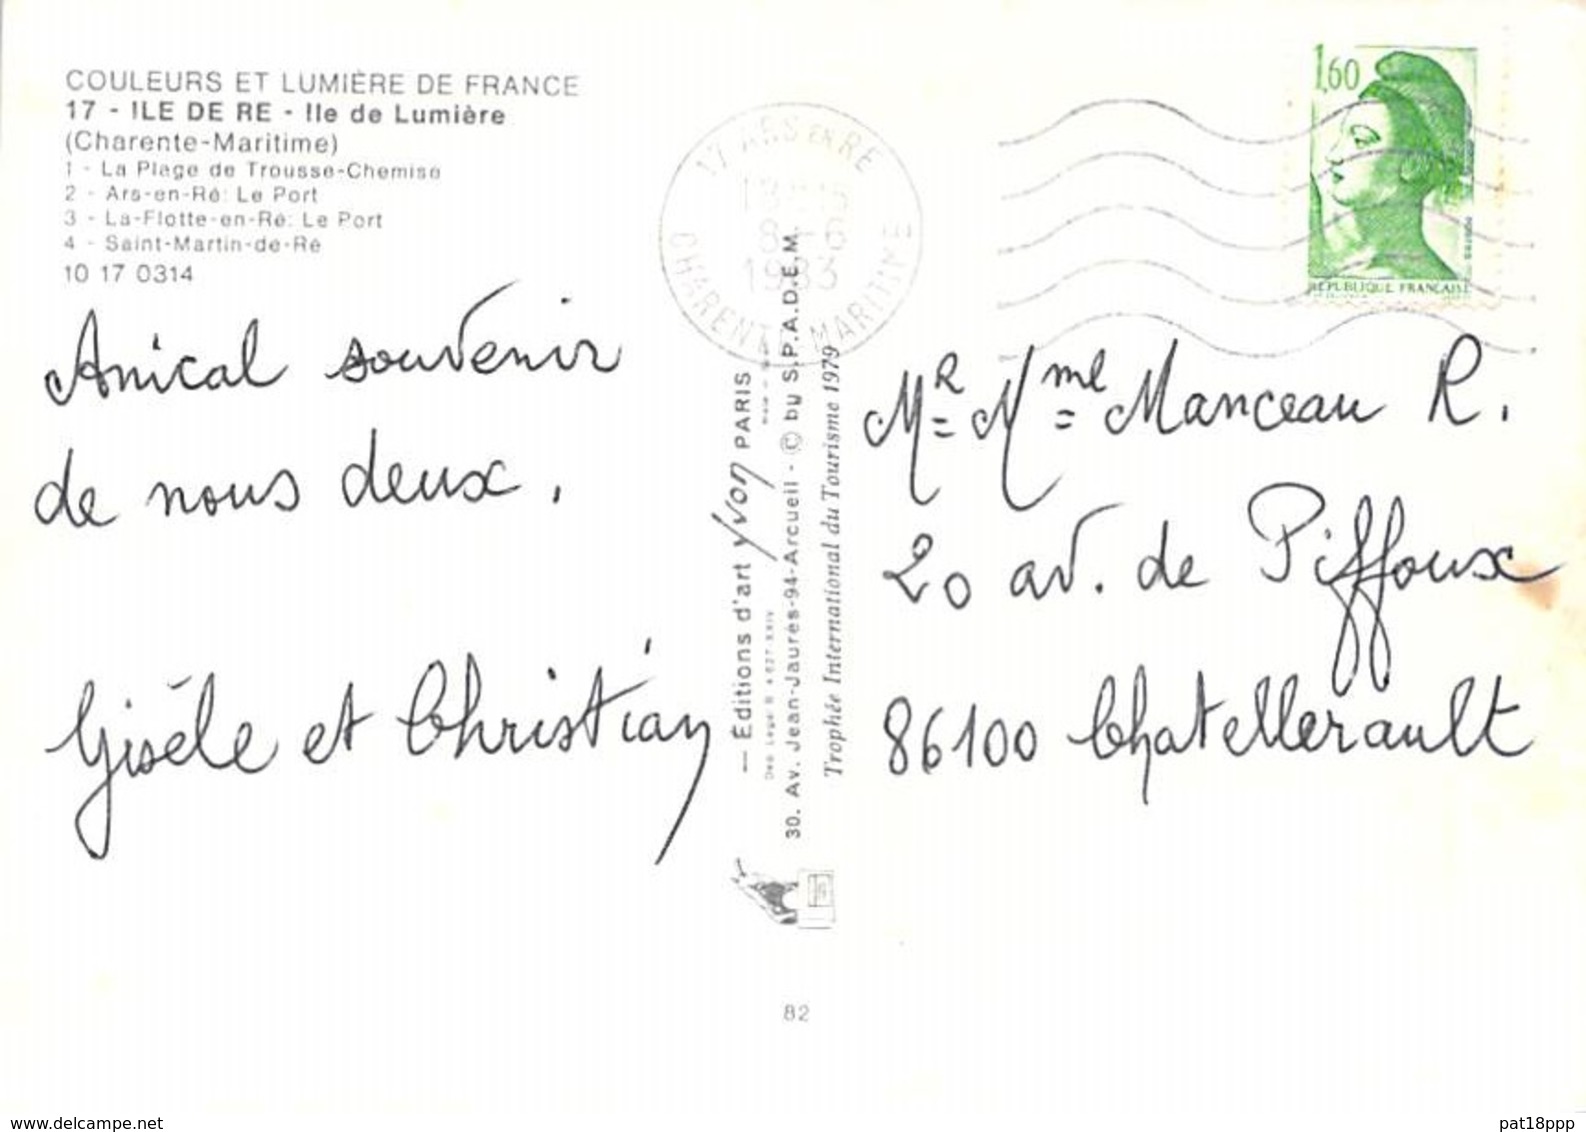 COULEURS ET LUMIÈRE DE FRANCE
17 - ILE DE RE - Ile de Lumière
(Charente-Maritime)
1 - La Plage de Trousse-Chemise
2 - Ars-en-Ré: Le Port
3 - La-Flotte-en-Ré: Le Port
4 - Saint-Martin-de-Ré
10 17 0314
Amical souvenir
de nous deux.
Gisèle et Christian
17 ARS EN RE
8 - 6
1983
CHARENTE MARITIME
— Editions d'art Yvon PARIS
30. Av. Jean-Jaurès-94-Arcueil - © by S.P.A.D.E.M.
Trophée International du Tourisme 1979
82
1,60
REPUBLIQUE FRANCAISE
Mr Mme Manceau R.
20 av. de Piffoux
86100 Chatellerault
www.delcampe.net
pat18ppp